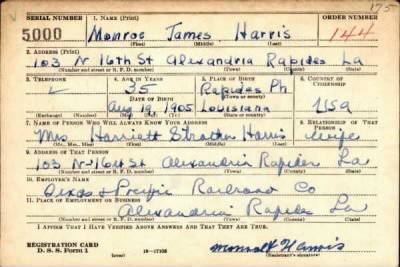 175
SERIAL NUMBER 1. NAME (Print) ORDER NUMBER
5000 Monroe James Harris 144
(First) (Middle) (Last)
2. ADDRESS (Print)
103 N 16th St Alexandria Rapides La
(Number and street or R. F. D. number) (Town) (County) (State)
3. TELEPHONE 4. AGE IN YEARS 5. PLACE OF BIRTH 6. COUNTRY OF CITIZENSHIP
35 Rapides Ph
DATE OF BIRTH (Town or county)
Aug 19, 1905 Louisiana USA
(Exchange) (Number) (Mo.) (Day) (Yr.) (State or country)
7. NAME OF PERSON WHO WILL ALWAYS KNOW YOUR ADDRESS 8. RELATIONSHIP OF THAT PERSON
Mrs Harriett Strother Harris Wife
(Mr., Mrs., Miss) (First) (Middle) (Last)
9. ADDRESS OF THAT PERSON
103 N-16th St Alexandria Rapides La
(Number and street or R. F. D. number) (Town) (County) (State)
10. EMPLOYER'S NAME
Texas & Pacific Railroad Co
11. PLACE OF EMPLOYMENT OR BUSINESS
Alexandria Rapides La
(Number and street or R. F. D. number) (Town) (County) (State)
I AFFIRM THAT I HAVE VERIFIED ABOVE ANSWERS AND THAT THEY ARE TRUE.
REGISTRATION CARD
D. S. S. Form 1 16-17105 Harris
(Registrant's signature)